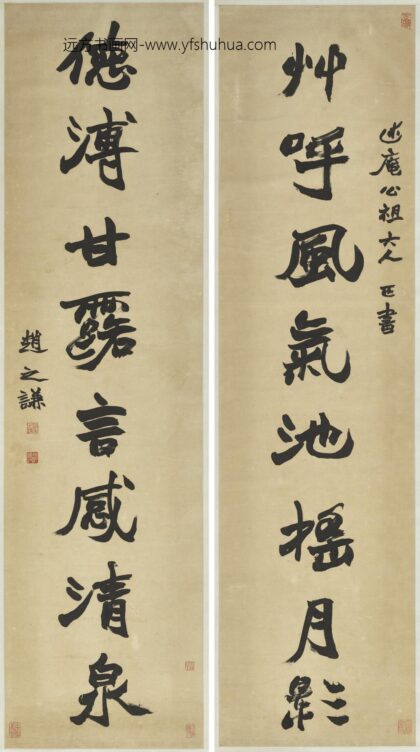 远方书画网-www.yfshuhua.com
述庵公祖大人 正書
艸呼風氣池搖月影
德溥甘露言感清泉
趙之謙